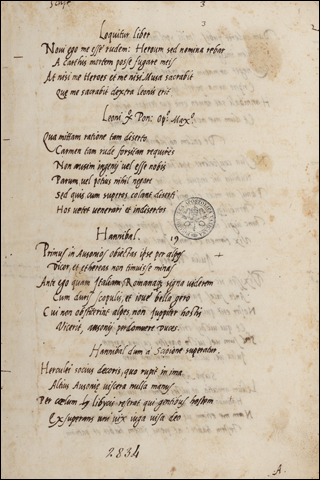 3
Loquitur liber
Novi ego me esse rudem: Heroum sed nomina rebar
A cœthis mortem posse fugare meis
At nisi me Heroes et me nisi Musa sacrabit
Que me sacrabit dextra leonis erit.
Leoni X Pon: Opt Max
Qua mittam ratione tam deserto
Carmen tam rude forsitan requires
Non ausim ingenij vel esse nobis
Parum vel potius nihil negare
Sed quis cum superos colant diserti
Hos vetet venerari et indisertos
Hannibal. 19
Primus in Ausonios obiectas ipse per alpes
Vicor, et ethereas non timuisse minas
Ante ego quam Italiam Romanaque signa viderem
Cum duris scopulis, et Iove bella gero
Cui non obstiterint alpes, non Iuppiter hostis
Vicerit, ausonij perdomuere duces.
Hannibal dum a Scipione superatur.
Herculei socius decoris, quo rupit in ima
Altius Ausonie viscera nulla manus
Per cœlum libycis referas qui gentibus hostem
Exsuperans uni vix iuga visa deo
2834
A.